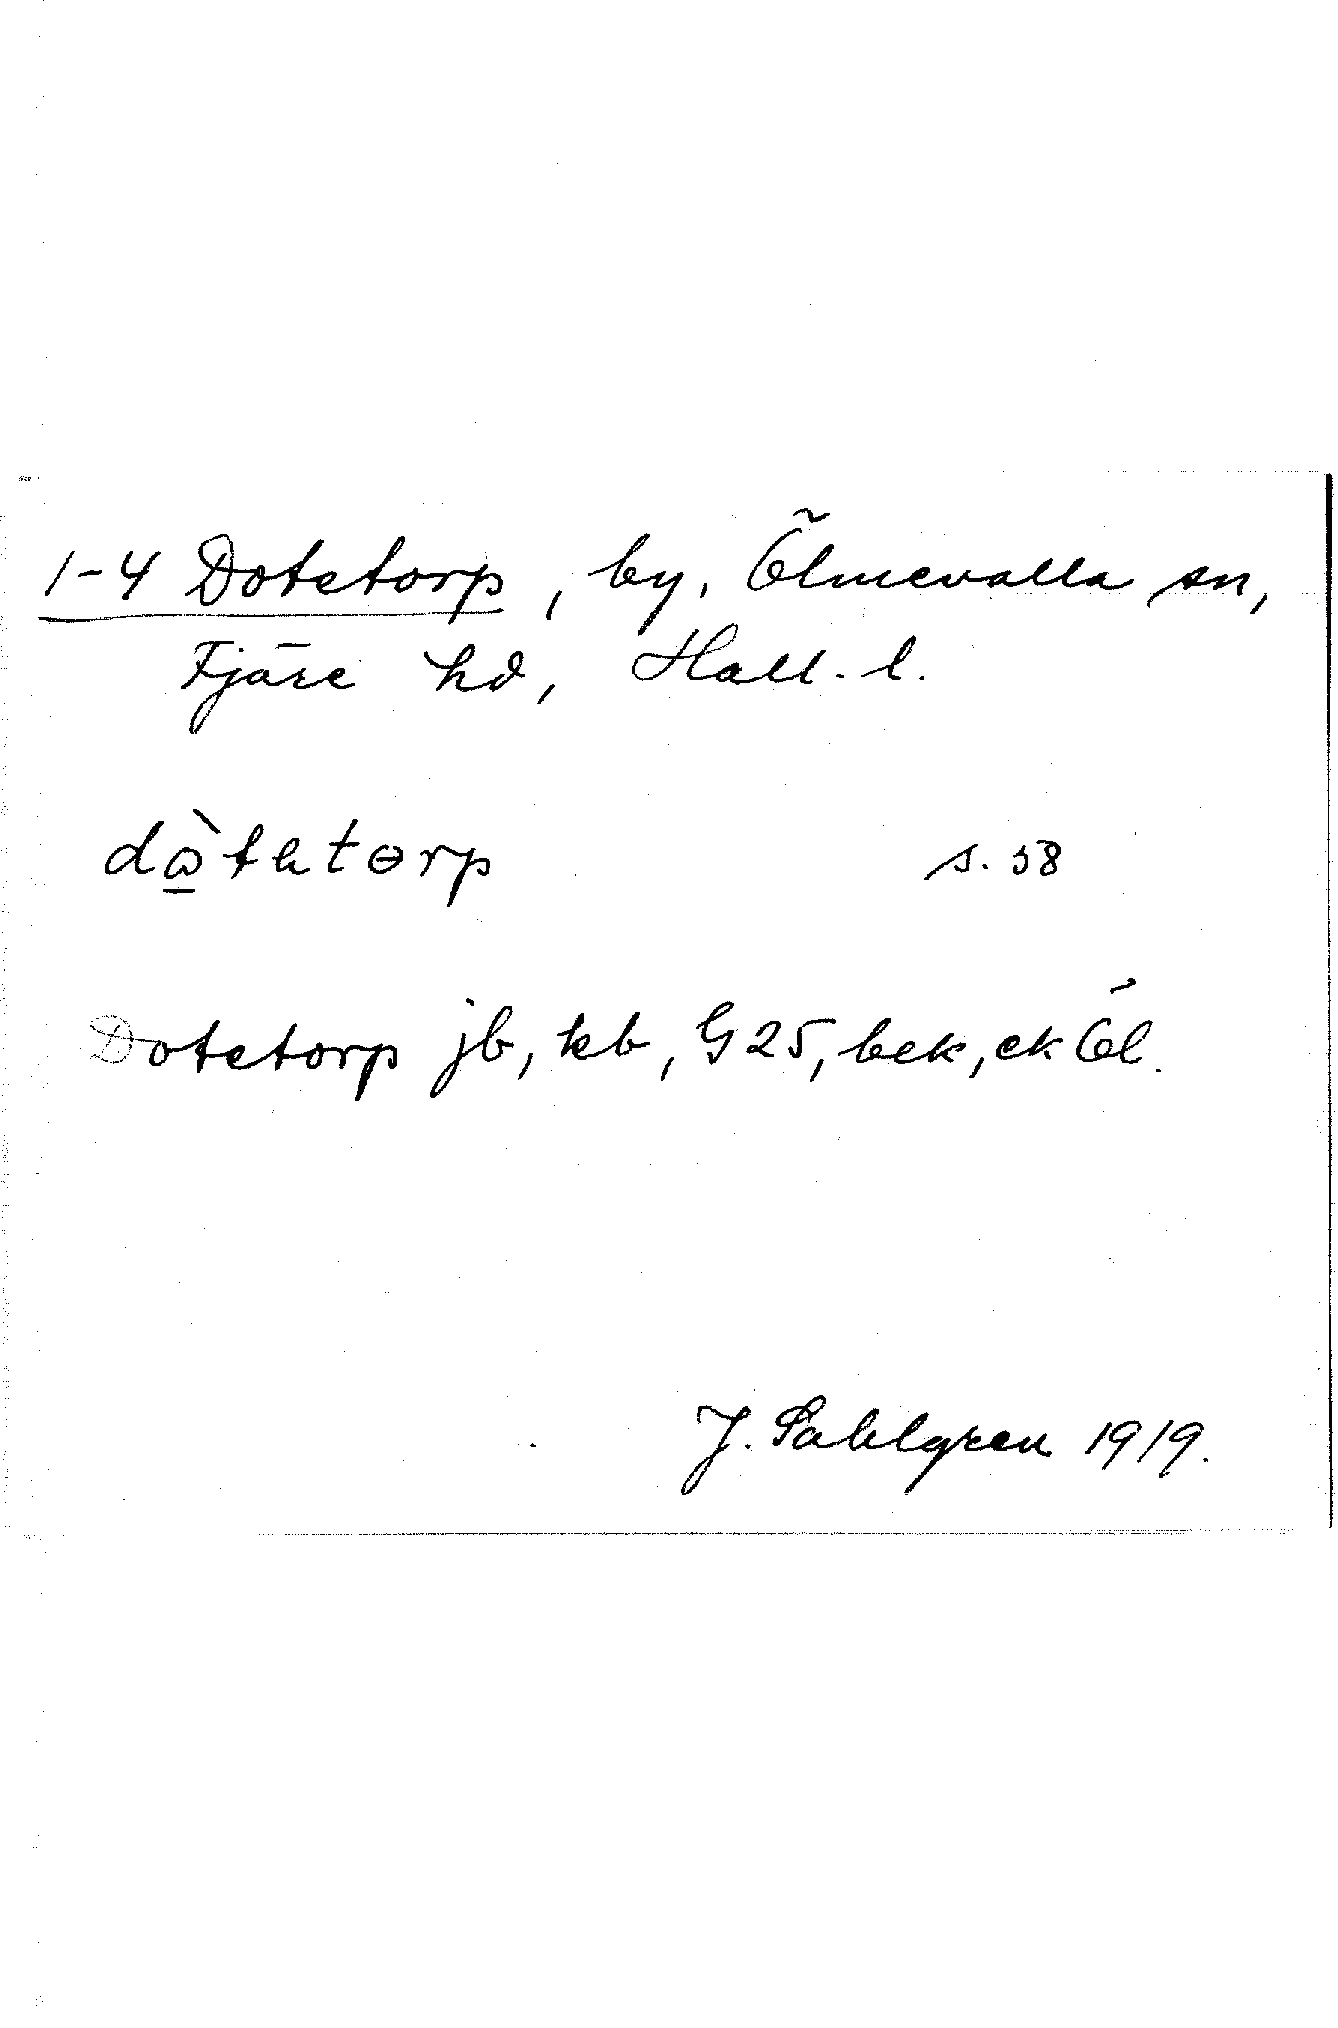 1-4 Dotetorp, by, Ölmevalla sn,
Fjäre hd, Hall. l.
s. 58
Dotetorp jb, kb, G 25, bek, ek Öl.
J. Sahlgren 1919.